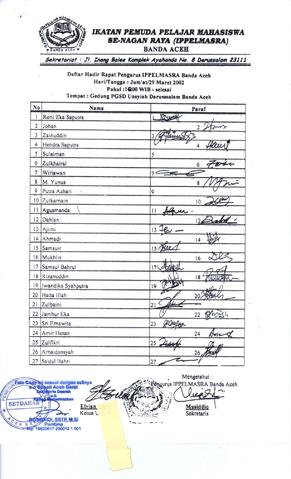 IKATAN PEMUDA PELAJAR MAHASISWA
SE-NAGAN RAYA (IPPELMASRA)
BANDA ACEH
Sekretariat : Jl. Inong Balee Komplek Ayahanda No. 8 Darussalam 23111
Daftar Hadir Rapat Pengurus IPPELMASRA Banda Aceh
Hari/Tangga : Jum'at/29 Maret 2002
Pukul : WIB - selesai
Tempat : Gedung PGSD Unsyiah Darussalam Banda Aceh
No Nama Paraf
1 Roni Eka Saputra 1
2 Johan 2
3 Zainuddin 3
4 Hendra Saputra 4
5 Sulaiman 5
6 Zulkhairal 6
7 Wiriawan 7
8 M. Yunus 8
9 Putra Azhari 9
10 Zulkarnain 10
11 Agusmanda 11
12 Dahlan 12
13 Ajimi 13
14 Ahmadi 14
15 Samsuir 15
16 Mukhlis 16
17 Samsul Bahrul 17
18 Rizanuddin 18
19 Iwandika Syahputra 19
20 Hatta Illah 20
21 Zulbaini 21
22 Jambur Eka 22
23 Sri Ernawita 23
24 Amir Hasan 24
25 Zulfikri 25
26 Arhaidansyah 26
27 Sa'dul Illahri 27
Mengetahui :
Pengurus IPPELMASRA Banda Aceh
Elvian Musiddiq
Ketua Sekretaris
SETDAKAB
SSTP, M.Si
Pembina